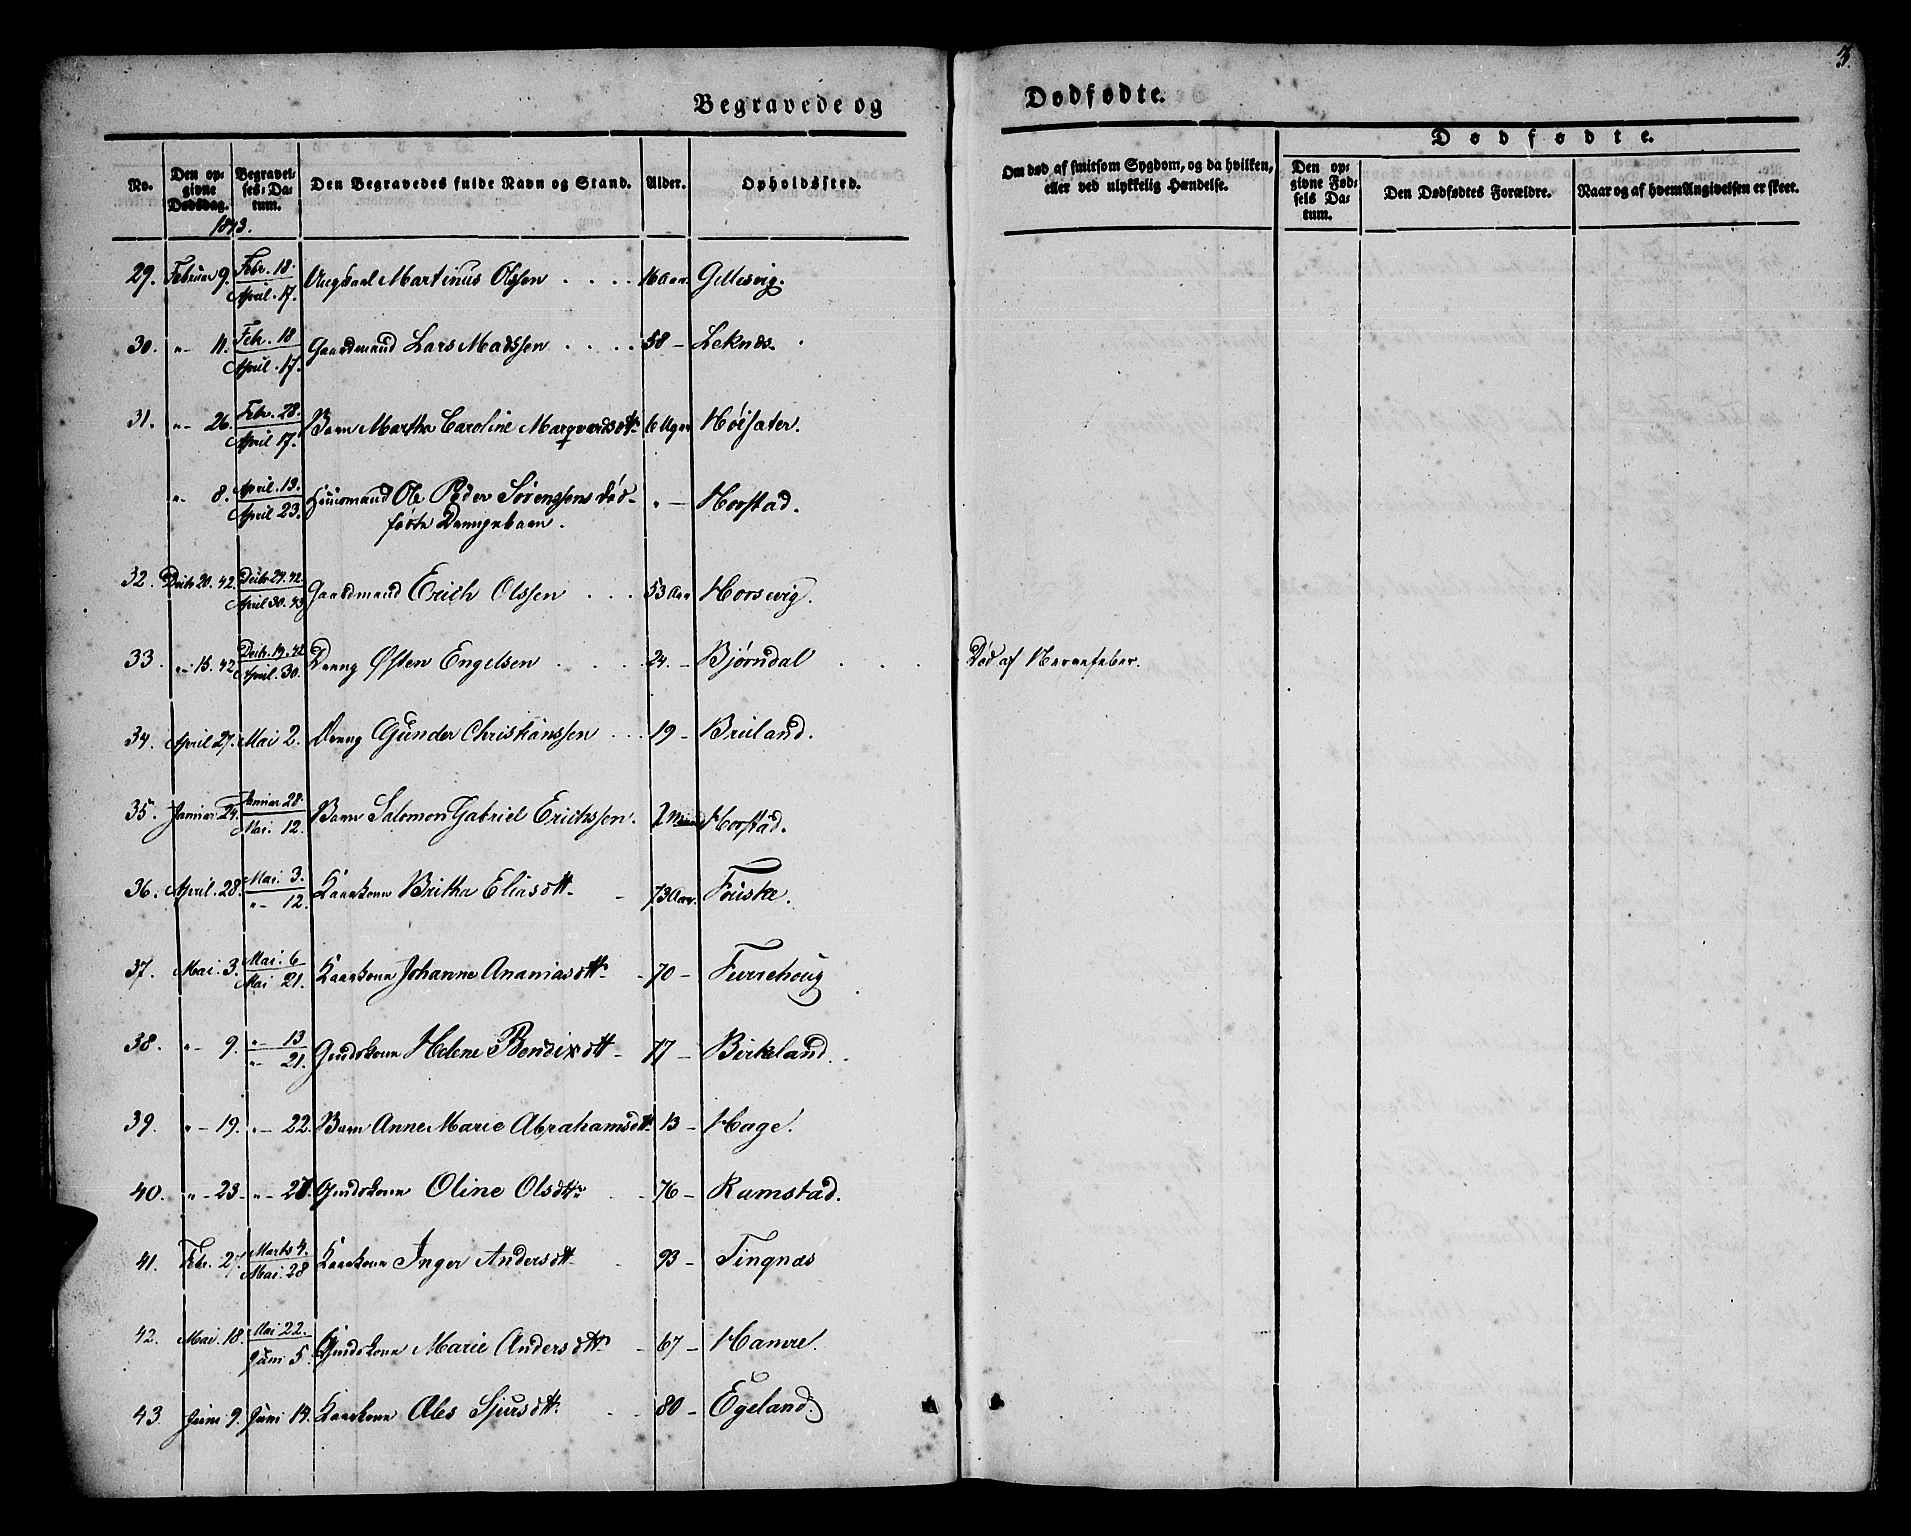 3.
Begravede og Dødfødte.
Dødfødte.
No. Den opgivne Dødsdag. Begravelses-Datum. Den Begravedes fulde Navn og Stand. Alder. Opholdssted. Om død af smitsom Sygdom, og da hvilken, eller ved ulykkelig Hændelse. Den opgivne Fødsels Datum. Den Dødfødtes Forældre. Naar og af hvem Angivelsen er skeet.
1843.
29. Februar 9. Febr. 18. April. 17. Ungkarl Martinus Olsson 16 Aar. Gillesvig.
30. "- 11. Febr. 18 April. 17. Gaardmand Lars Madssen 58 - Leknæs.
31. "- 26. Febr. 28. April 17. Barn Martha Caroline Marqvardsdtt. 6 Uger Høisæter.
"- 8. April. 19. April 23. Huusmand Ole Peder Sørenssens død-
fødte Drengebarn. " - Horstad.
32. Decbr 20. 42. Decbr 24. 42. April 30. 43 Gaardmand Erich Olssen 53 Aar Horsvig.
33. "- 15. 42. Decbr. 19. 42 April. 30. Dreng Østen Engelsen 24. - Bjørndal Død af Nervefeber.
34. April 27. Mai 2. Dreng Gunder Christianssen 19 - Bruland.
35. Januar 24. Januar 28. Mai. 12. Barn Salomon Gabriel Erichssen. Horstad.
36. April. 28. Mai. 3. "- 12. Kaarkone Britha Eliasdtt. 73 Aar. Fouske.
37. Mai. 3. Mai. 6 Mai 21. Kaarkone Johanne Ananiasdtt. 70 - Furrehoug
38. "- 9. "- 13 "- 21. Huuskone Helene Bendixdtt. 77 - Birkeland.
39. "- 19. "- 22. Barn Anne Marie Abrahamsdtt. 13 - Hage.
40. "- 23. "- 28. Oline Olsdtr. 76 - Ramstad.
41. Febr. 27. Marts 4. Mai. 28 Kaarkone Inger Andersdtt. 93 - Tingnæs
42. Mai. 18. Mai 22. Juni 5. Marie Andersdtt. 67 - Hamre.
43. Juni 9. Juni 19. Kaarkone Ales Sjursdtt. 80 - Egeland.